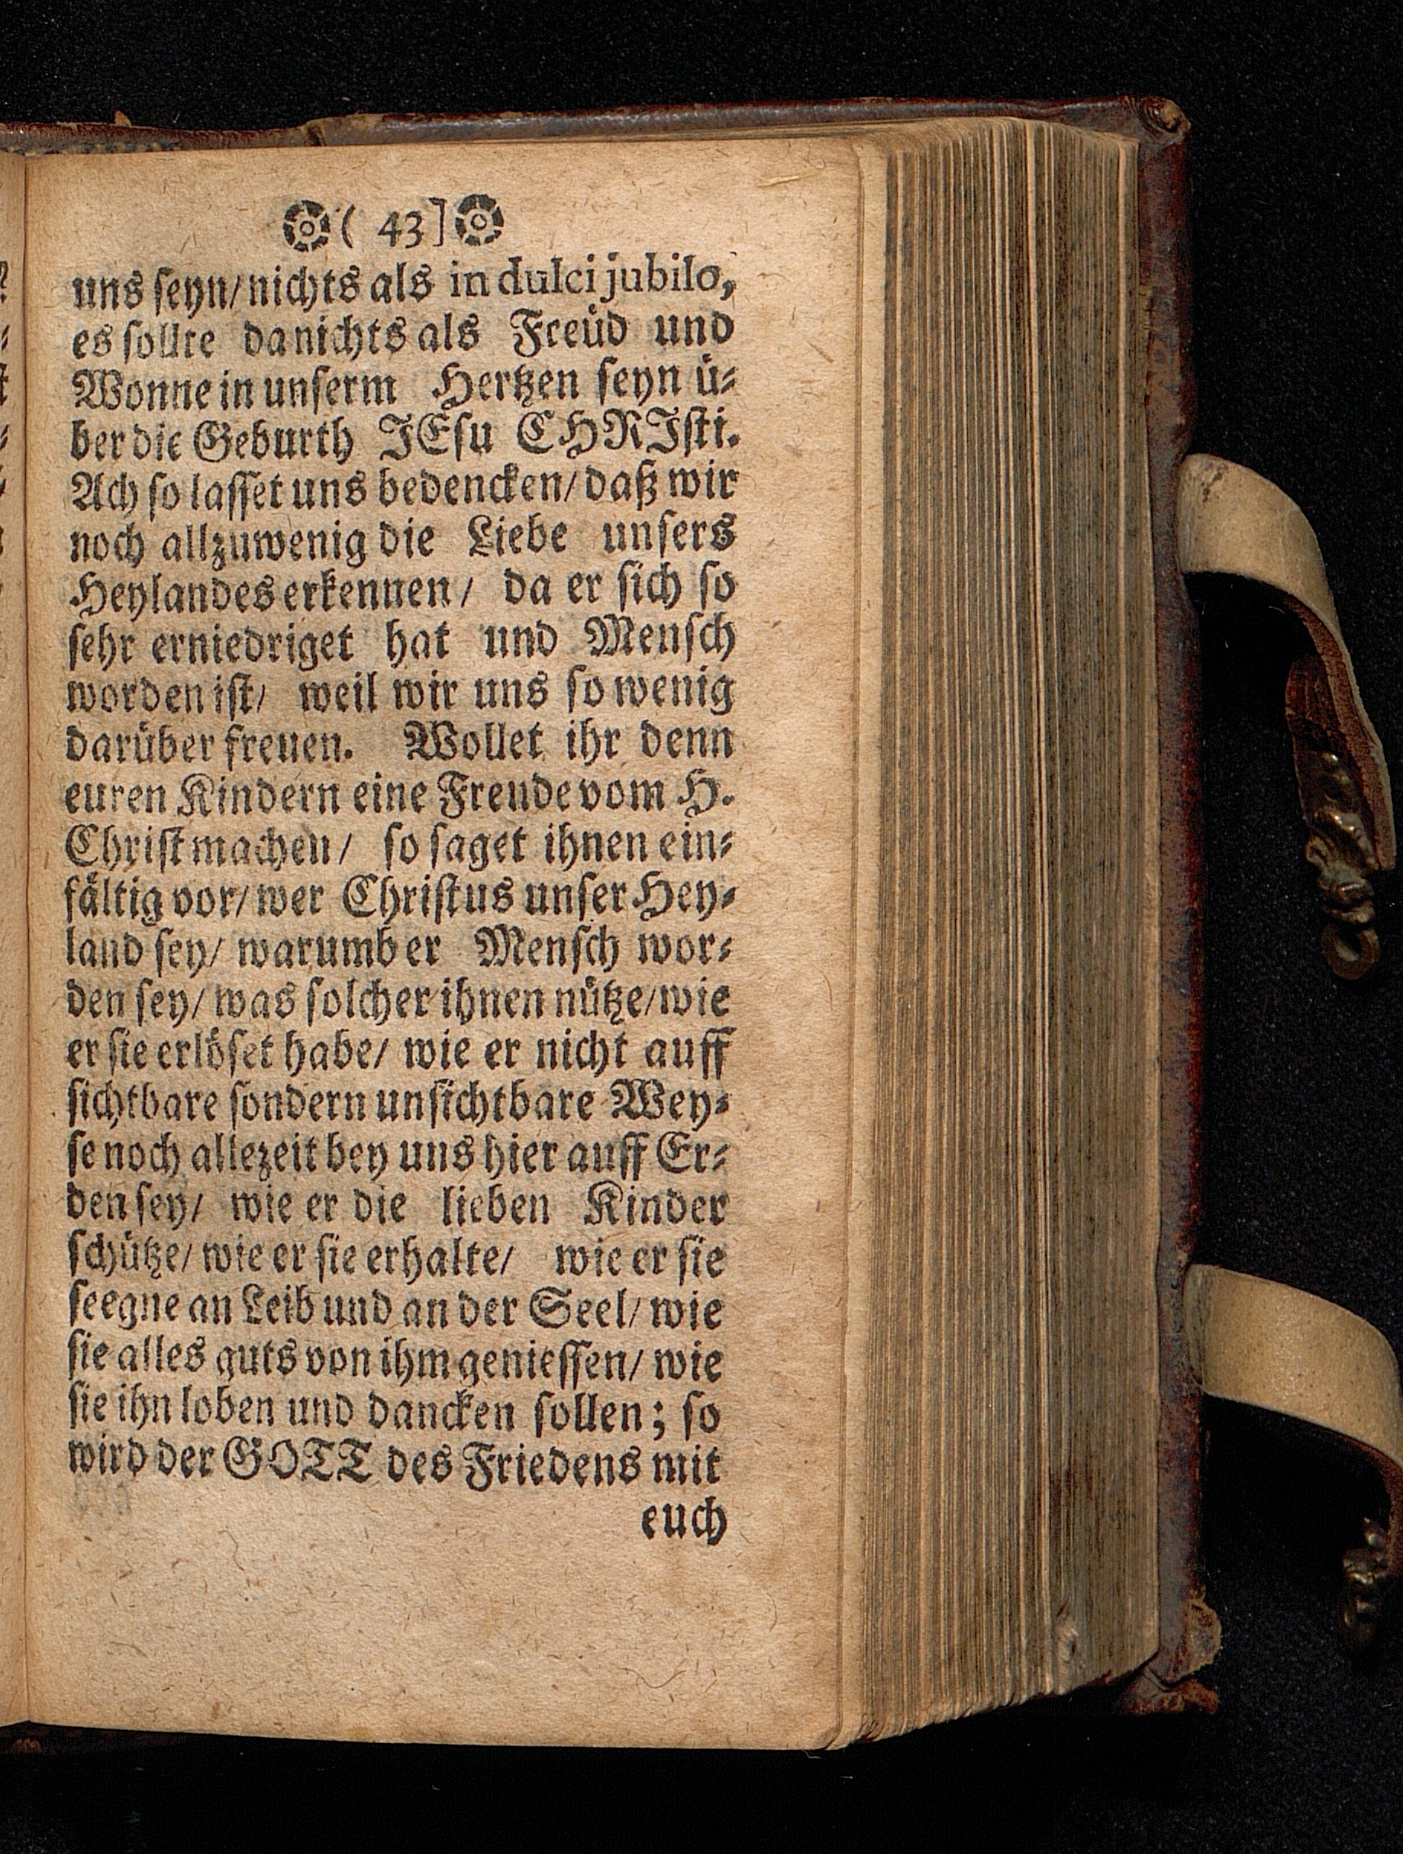 ( 43 ]
uns seyn/ nichts als in dulci jubilo,
es sollte da nichts als Freüd und
Wonne in unserm Hertzen seyn ü-
ber die Geburth JEsu CHRJsti.
Ach so lasset uns bedencken/ daß wir
noch allzuwenig die Liebe unsers
Heylandes erkennen/ da er sich so
sehr erniedriget hat und Mensch
worden ist/ weil wir uns so wenig
darüber freuen. Wollet ihr denn
euren Kindern eine Freude vom H.
Christ machen/ so saget ihnen ein-
fältig vor/ wer Christus unser Hey-
land sey/ warumb er Mensch wor-
den sey/ was solcher ihnen nütze/ wie
er sie erlöset habe/ wie er nicht auff
sichtbare sondern unsichtbare Wey-
se noch allezeit bey uns hier auff Er-
den sey/ wie er die lieben Kinder
schütze/ wie er sie erhalte/ wie er sie
seegne an Leib und an der Seel/ wie
sie alles guts von ihm geniessen/ wie
sie ihn loben und dancken sollen; so
wird der GOTT des Friedens mit
euch